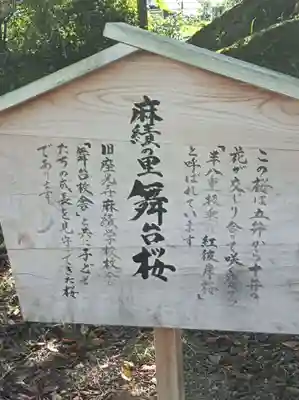 この桜は五弁から十弁の
花が交じり合って咲く
「半八重枝垂れ紅彼岸桜」
と呼ばれています
麻績の里舞台桜
旧座光寺麻績学校校舎
「舞台校舎」と共に子ども
たちの成長を見守ってきた桜
であります